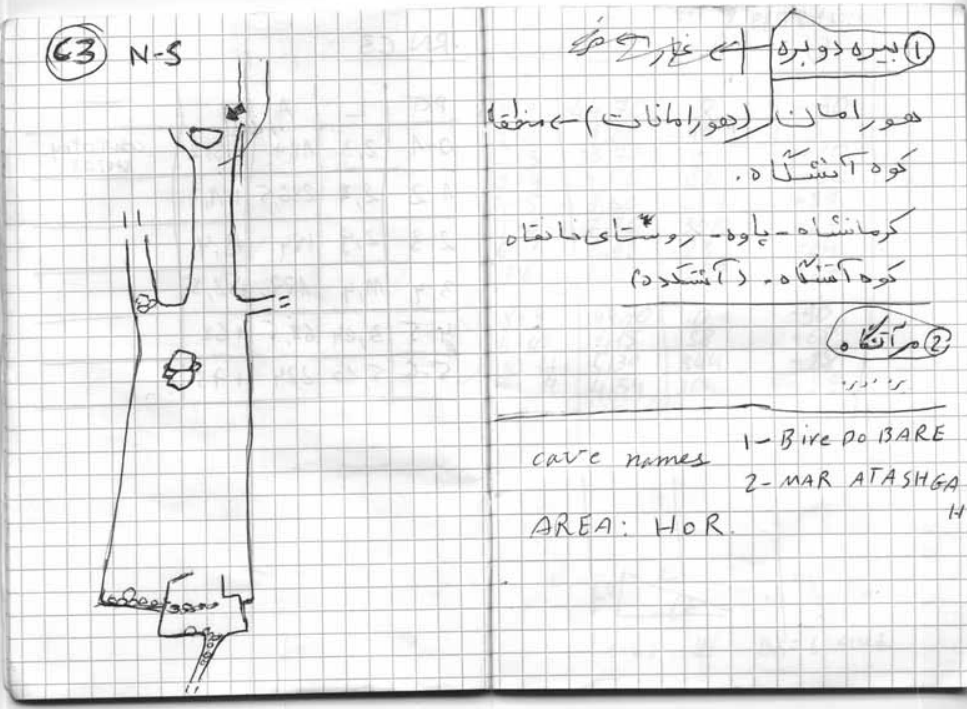 63 N-S
① بیره دوبره
هورامان (هورامانات) ← منطقه
کوه آتشگاه.
کرمانشاه - پاوه - روستای خانقاه
کوه آتشگاه - (آتشکده)
② مرآتشگاه
cave names 1- Bire Do BARE
2- MAR ATASHGAH
AREA: HOR.